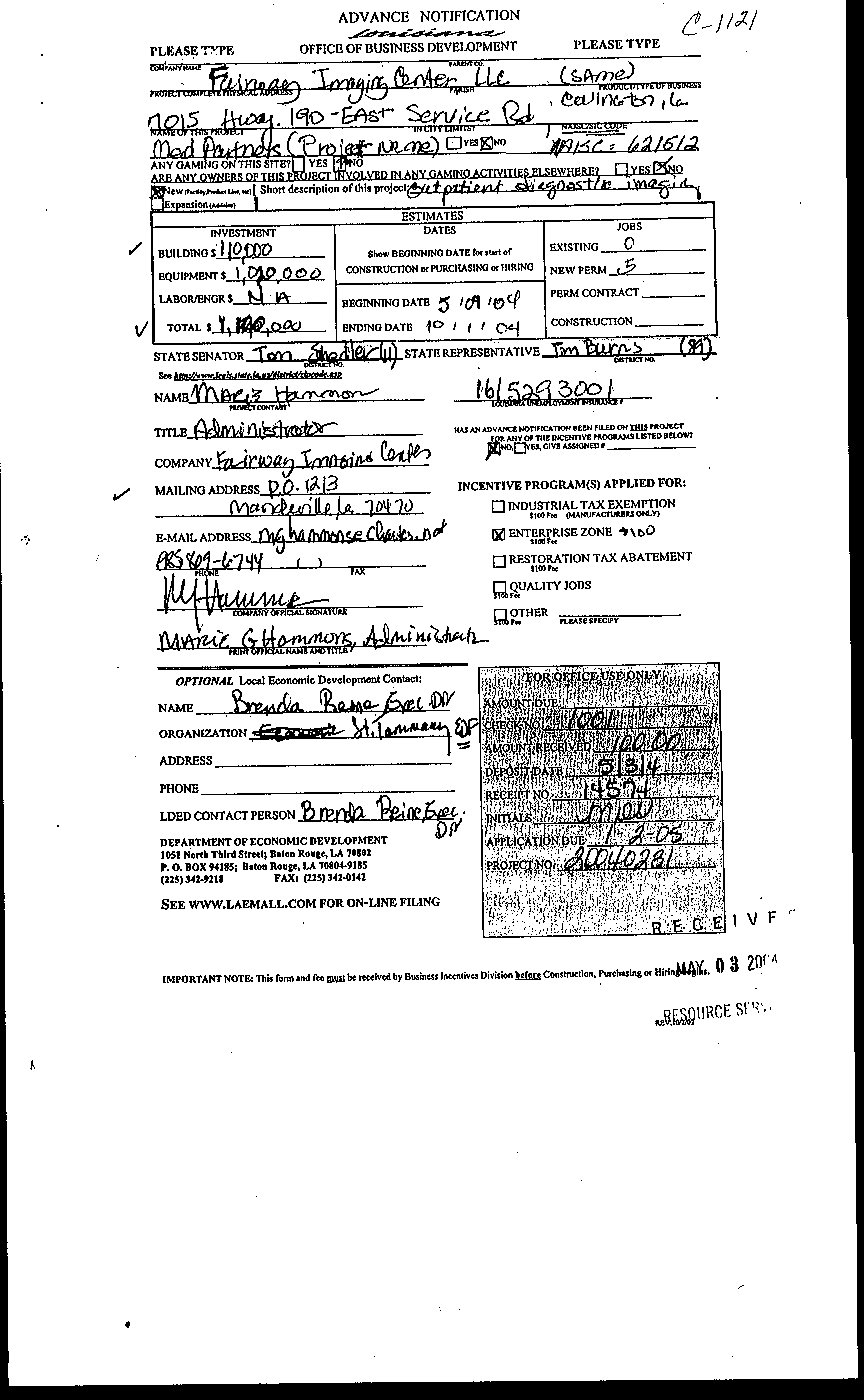 ADVANCE NOTIFICATION
C-1121
Louisiana
PLEASE TYPE OFFICE OF BUSINESS DEVELOPMENT PLEASE TYPE
COMPANY NAME PARENT CO.
Fairway Imaging Center LLC (SAme)
PROJECT COMPLETE PHYSICAL ADDRESS PARISH PRODUCT/TYPE OF BUSINESS
7015 Hwy. 190 - EAST Service Rd , Covington, La
NAME OF THIS PROJECT IN CITY LIMITS? NAICS/SIC CODE
Med Partners (Project Name) YES NO NAISC = 621512
ANY GAMING ON THIS SITE? YES NO
ARE ANY OWNERS OF THIS PROJECT INVOLVED IN ANY GAMING ACTIVITIES ELSEWHERE? YES NO
New (Facility, Product Line, etc) Short description of this project: Outpatient diagnostic imaging
Expansion (Addition)
ESTIMATES
INVESTMENT DATES JOBS
BUILDING $ 110,000 Show BEGINNING DATE for start of EXISTING 0
EQUIPMENT $ 1,010,000 CONSTRUCTION or PURCHASING or HIRING NEW PERM 5
LABOR/ENGR $ N A BEGINNING DATE 5 / 09 / 04 PERM CONTRACT
TOTAL $ ENDING DATE 10 / 1 / 04 CONSTRUCTION
STATE SENATOR Tom Shedler (11) STATE REPRESENTATIVE Tim Burns (89)
DISTRICT NO. DISTRICT NO.
See http://www.legis.state.la.us/district/zipcode.asp
NAME Marie Hammon 1615293001
PROJECT CONTACT LOUISIANA UNEMPLOYMENT INSURANCE #
TITLE Administrator HAS AN ADVANCE NOTIFICATION BEEN FILED ON THIS PROJECT
FOR ANY OF THE INCENTIVE PROGRAMS LISTED BELOW?
NO, YES, GIVE ASSIGNED #
COMPANY Fairway Imaging Center
MAILING ADDRESS P.O. 1213 INCENTIVE PROGRAM(S) APPLIED FOR:
Mandeville, La 70470 INDUSTRIAL TAX EXEMPTION
$100 Fee (MANUFACTURERS ONLY)
E-MAIL ADDRESS ENTERPRISE ZONE
$100 Fee
809-6744 ( ) RESTORATION TAX ABATEMENT
PHONE FAX $100 Fee
QUALITY JOBS
$100 Fee
COMPANY OFFICIAL SIGNATURE OTHER
$100 Fee PLEASE SPECIFY
MARIE G HAMMONS, Administrator
PRINT OFFICIAL NAME AND TITLE
OPTIONAL Local Economic Development Contact: FOR OFFICE USE ONLY
NAME Brenda Exec Dir AMOUNT DUE
ORGANIZATION St. Tammany EDF CHECK NO. 1001
AMOUNT RECEIVED 100.00
ADDRESS DEPOSIT DATE 5/3/4
PHONE RECEIPT NO. 14574
LDED CONTACT PERSON Brenda Exec. Dir INITIALS
DEPARTMENT OF ECONOMIC DEVELOPMENT APPLICATION DUE 1-2-05
1051 North Third Street; Baton Rouge, LA 70802 PROJECT NO. 20040281
P. O. BOX 94185; Baton Rouge, LA 70804-9185
(225) 342-9218 FAX: (225) 342-0142
SEE WWW.LAEMALL.COM FOR ON-LINE FILING
RECEIVE
IMPORTANT NOTE: This form and fee must be received by Business Incentives Division before Construction, Purchasing or Hiring begins.
MAY 03 2004
RESOURCE SERV